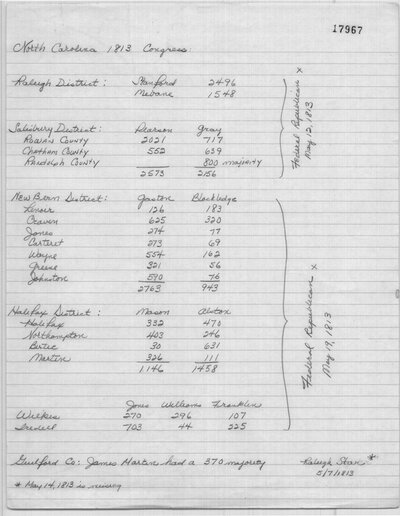 17967
North Carolina 1813 Congress
Raleigh District: Stanford 2496
Mebane 1548
Federal Republican x
May 12, 1813
Salisbury District: Pearson Gray
Rowan County 2021 717
Chatham County 552 639
Randolph County 800 majority
2573 2156
New Bern District: Gaston Blackledge
Lenoir 126 183
Craven 625 320
Jones 274 77
Carteret 273 69
Wayne 554 162
Greene 321 56
Johnston 590 76
2763 943
Halifax District: Mason Alston
Halifax 332 470
Northampton 403 246
Bertie 30 631
Martin 326 111
1146 1458
Federal Republican x
May 19, 1813
Jones Williams Franklin
Wilkes 270 296 107
Iredell 703 44 225
Guilford Co: James Martin had a 370 majority
Raleigh Star *
5/7/1813
* May 14, 1813 is missing